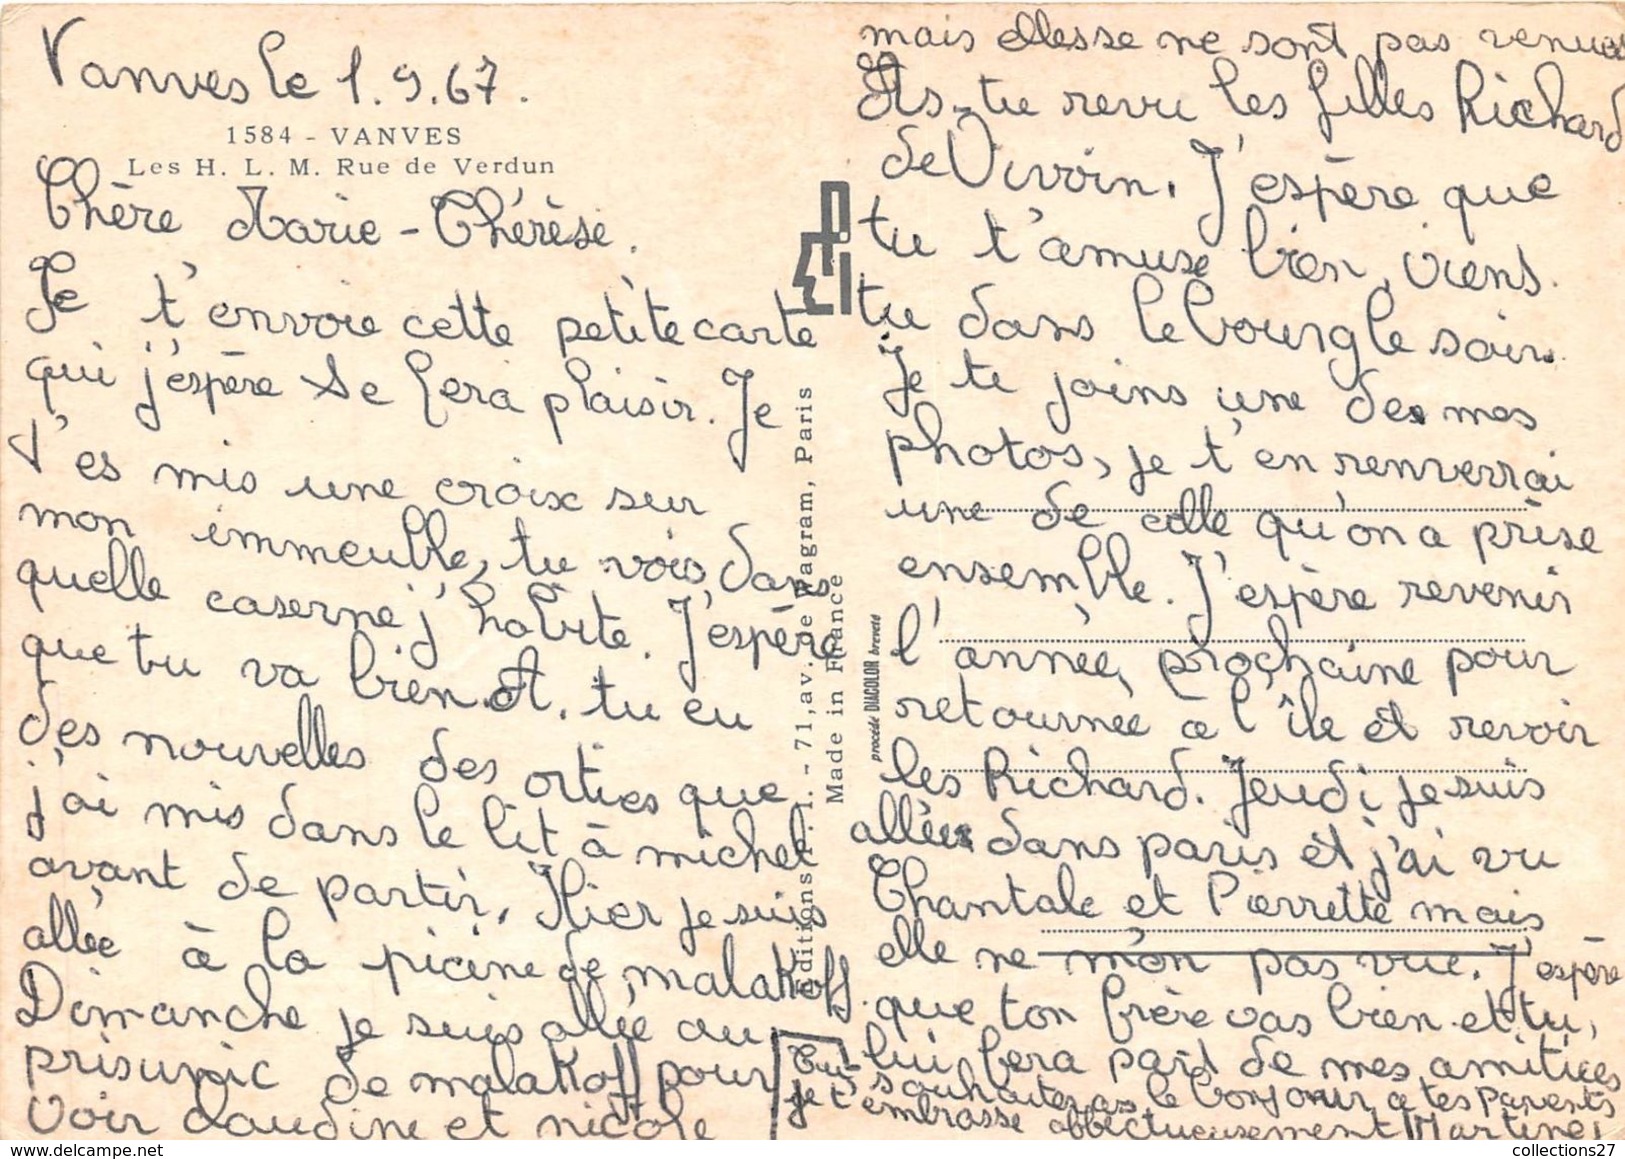 Vanves le 1.9.67.
1584 - VANVES
Les H. L. M. Rue de Verdun
Chère Marie-Thérèse.
Je t'envoie cette petite carte
qui j'espère te fera plaisir. Je
t'es mis une croix sur
mon immeuble, tu vois dans
quelle caserne j'habite. J'espère
que tu va bien. A. tu eu
des nouvelles des orties que
j'ai mis dans le lit à michel
avant de partir. Hier je suis
allée à la picine de malakoff.
Dimanche je suis allée au
prisunic de malakoff pour
voir claudine et nicole
Editions P. I. - 71, av. de Wagram, Paris
Made in France
procédé DIACOLOR breveté
P.I.
mais elles se ne sont pas venues
As-tu revu les filles Richard
de Vivoin. J'espère que
tu t'amuse bien, viens.
tu dans le bourg le soir.
Je te joins une de mes
photos, je t'en renverrai
une de celle qu'on a prise
ensemble. J'espère revenir
l'année, prochaine pour
retournée à l'île et revoir
les Richard. Jeudi je suis
allée dans paris et j'ai vu
Chantale et Pierrette mais
elle ne m'on pas vue. J'espère
que ton frère vas bien et tu,
lui fera part de mes amitiées
Tu souhaiteras le bonjour a tes parents
Je t'embrasse affectueusement Martine
collections27